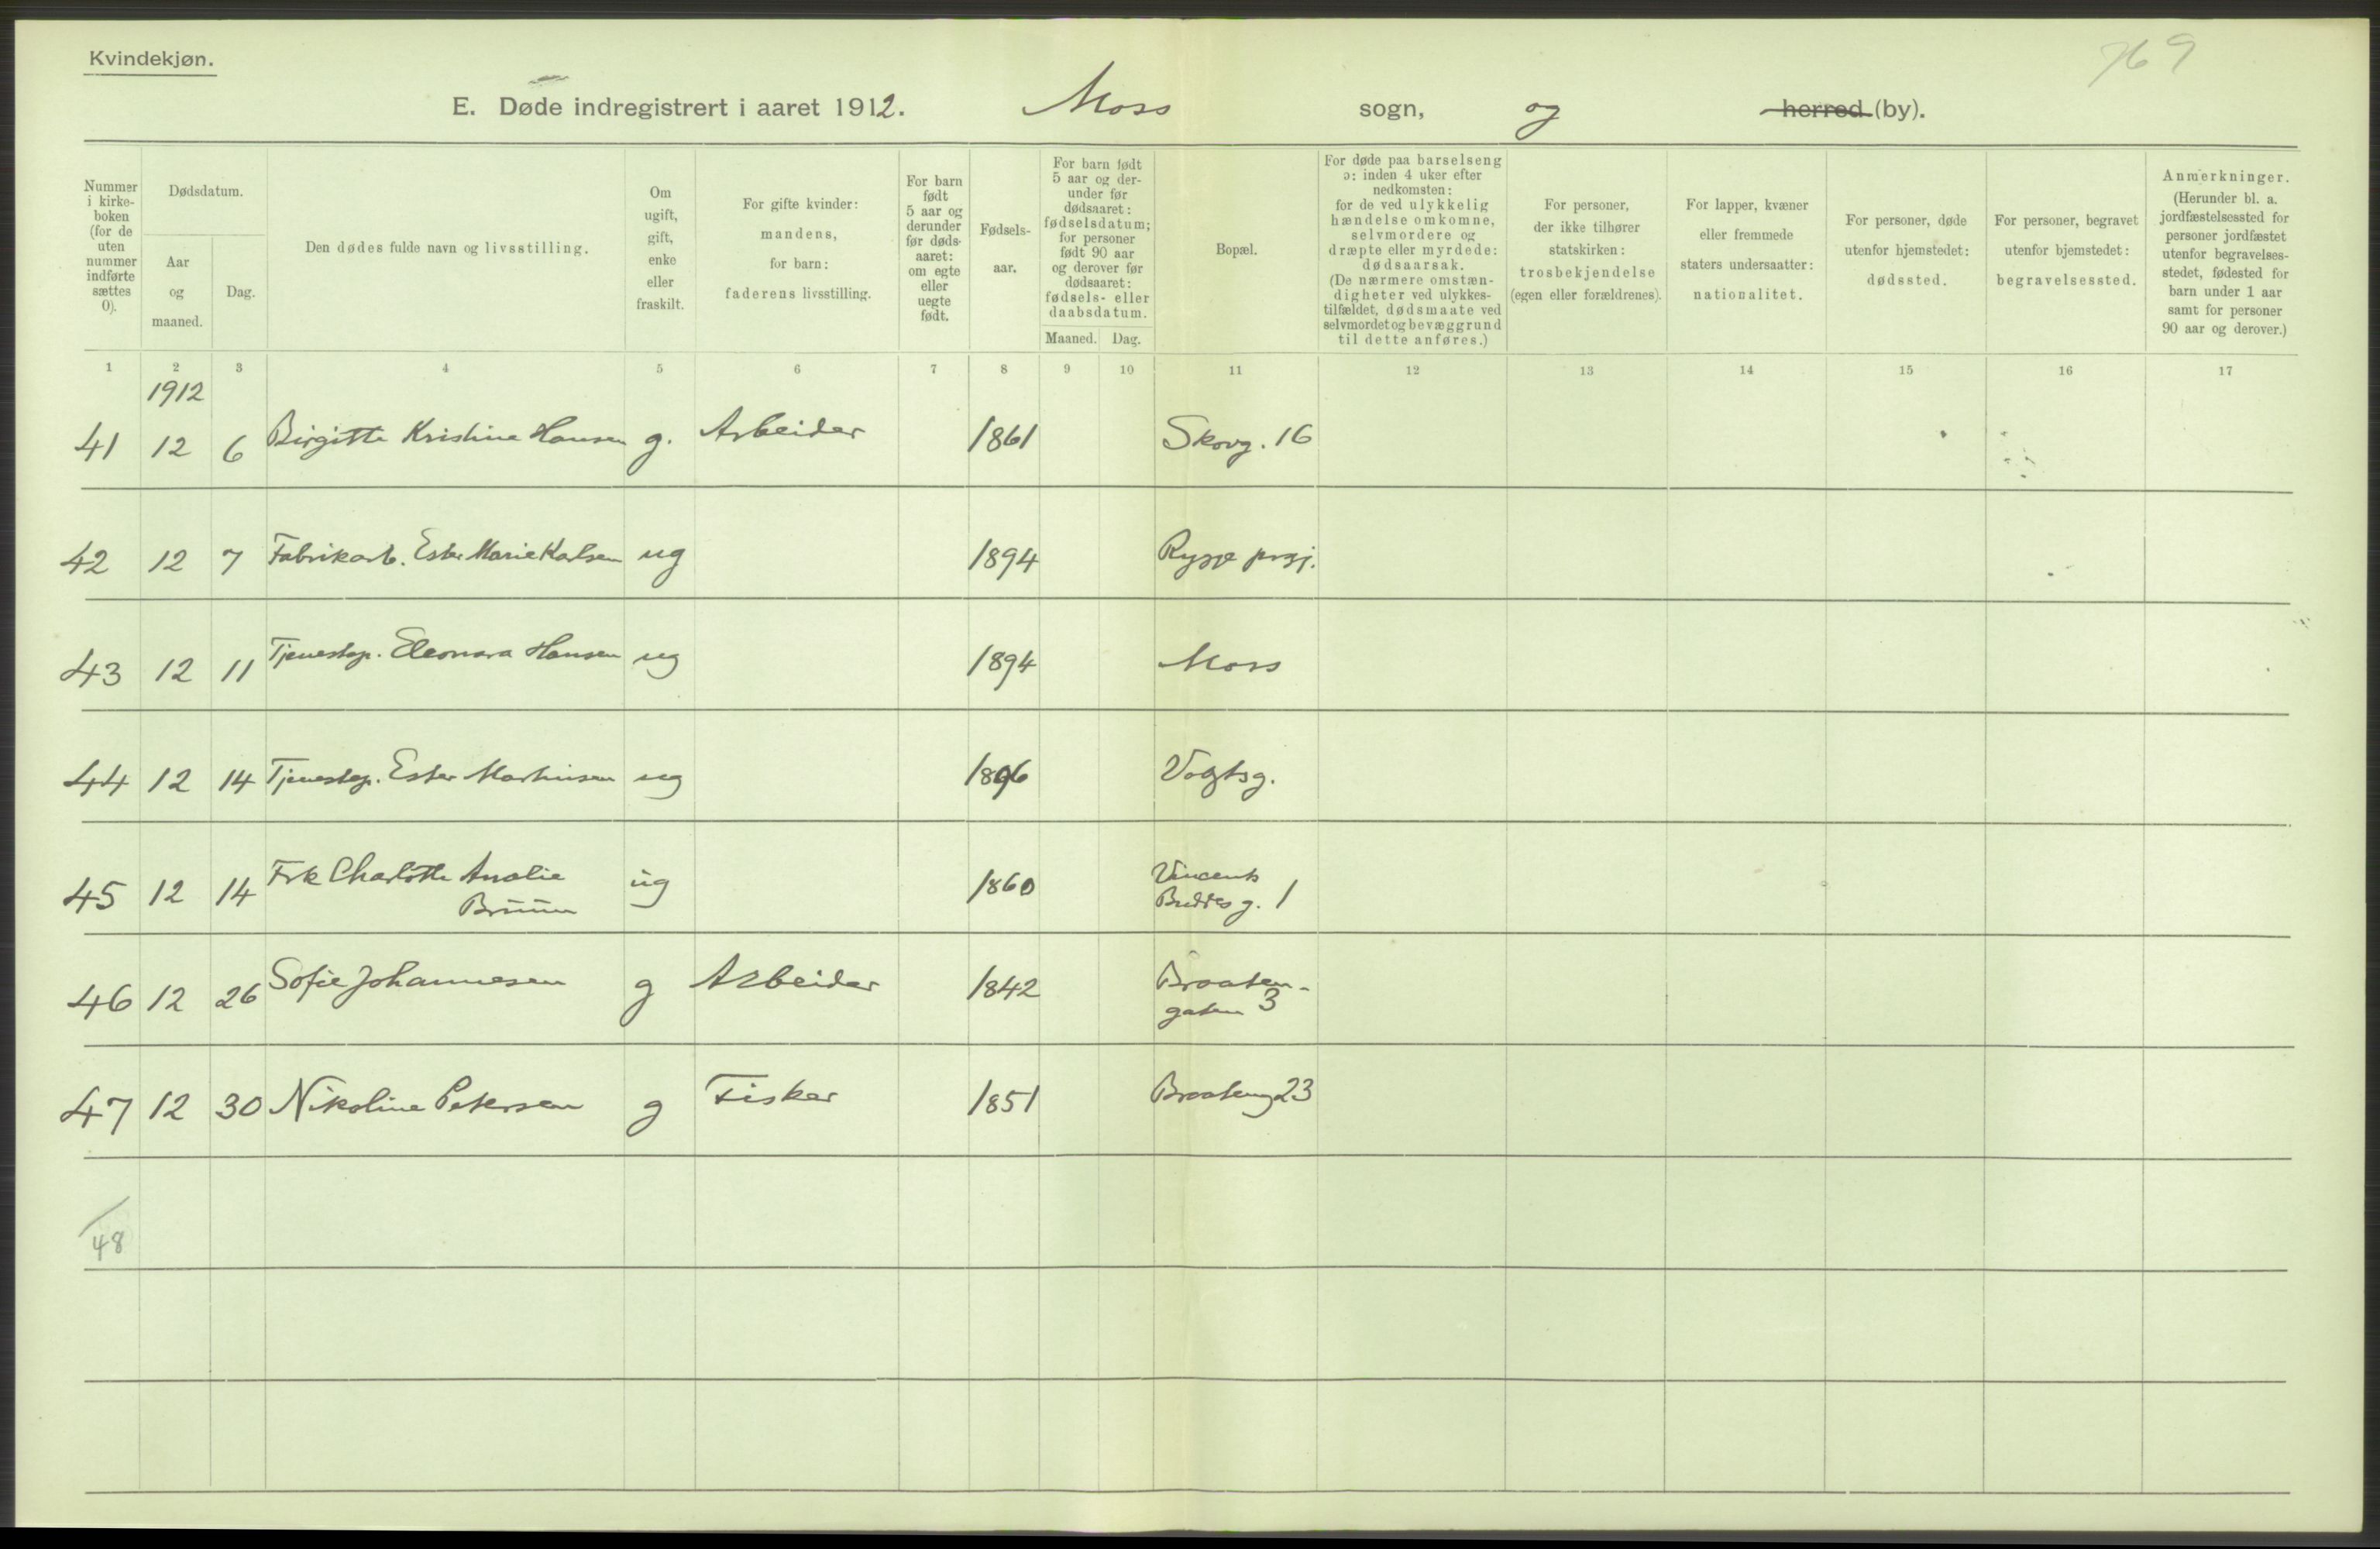 Kvindekjøn.
769
E. Døde indregistrert i aaret 1912. Moss sogn, og herred (by).
Nummer i kirke-boken (for de uten nummer indførte sættes 0).
Dødsdatum.
Aar og maaned.
Dag.
Den dødes fulde navn og livsstilling.
Om ugift, gift, enke eller fraskilt.
For gifte kvinder: mandens, for barn: faderens livsstilling.
For barn født 5 aar og derunder før døds-aaret: om egte eller uegte født.
Fødsels-aar.
For barn født 5 aar og der-under før dødsaaret: fødselsdatum; for personer født 90 aar og derover før dødsaaret: fødsels- eller daabsdatum.
Maaned. Dag.
Bopæl.
For døde paa barselseng ɔ: inden 4 uker efter nedkomsten: for de ved ulykkelig hændelse omkomne, selvmordere og dræpte eller myrdede: dødsaarsak. (De nærmere omstæn-digheter ved ulykkes-tilfældet, dødsmaate ved selvmordet og bevæggrund til dette anføres.)
For personer, der ikke tilhører statskirken: trosbekjendelse (egen eller forældrenes).
For lapper, kvæner eller fremmede staters undersaatter: nationalitet.
For personer, døde utenfor hjemstedet: dødssted.
For personer, begravet utenfor hjemstedet: begravelsessted.
Anmerkninger. (Herunder bl. a. jordfæstelsessted for personer jordfæstet utenfor begravelses-stedet, fødested for barn under 1 aar samt for personer 90 aar og derover.)
1 2 3 4 5 6 7 8 9 10 11 12 13 14 15 16 17
1912
41 12 6 Birgitte Kristine Hansen g. Arbeider 1861 Skovg. 16
42 12 7 Fabrikarb. Ester Marie Karlsen ug 1894 Rygge prgj.
43 12 11 Tjenestep. Eleonora Hansen ug 1894 Moss
44 12 14 Tjenestep. Ester Martinsen ug 1896 Vogtsg.
45 12 14 Frk Charlotte Amalie Bruun ug 1860 Vincents Buddes g. 1
46 12 26 Sofie Johannesen g Arbeider 1842 Braaten-gaten 3
47 12 30 Nikoline Petersen g Fisker 1851 Braateng 23
48